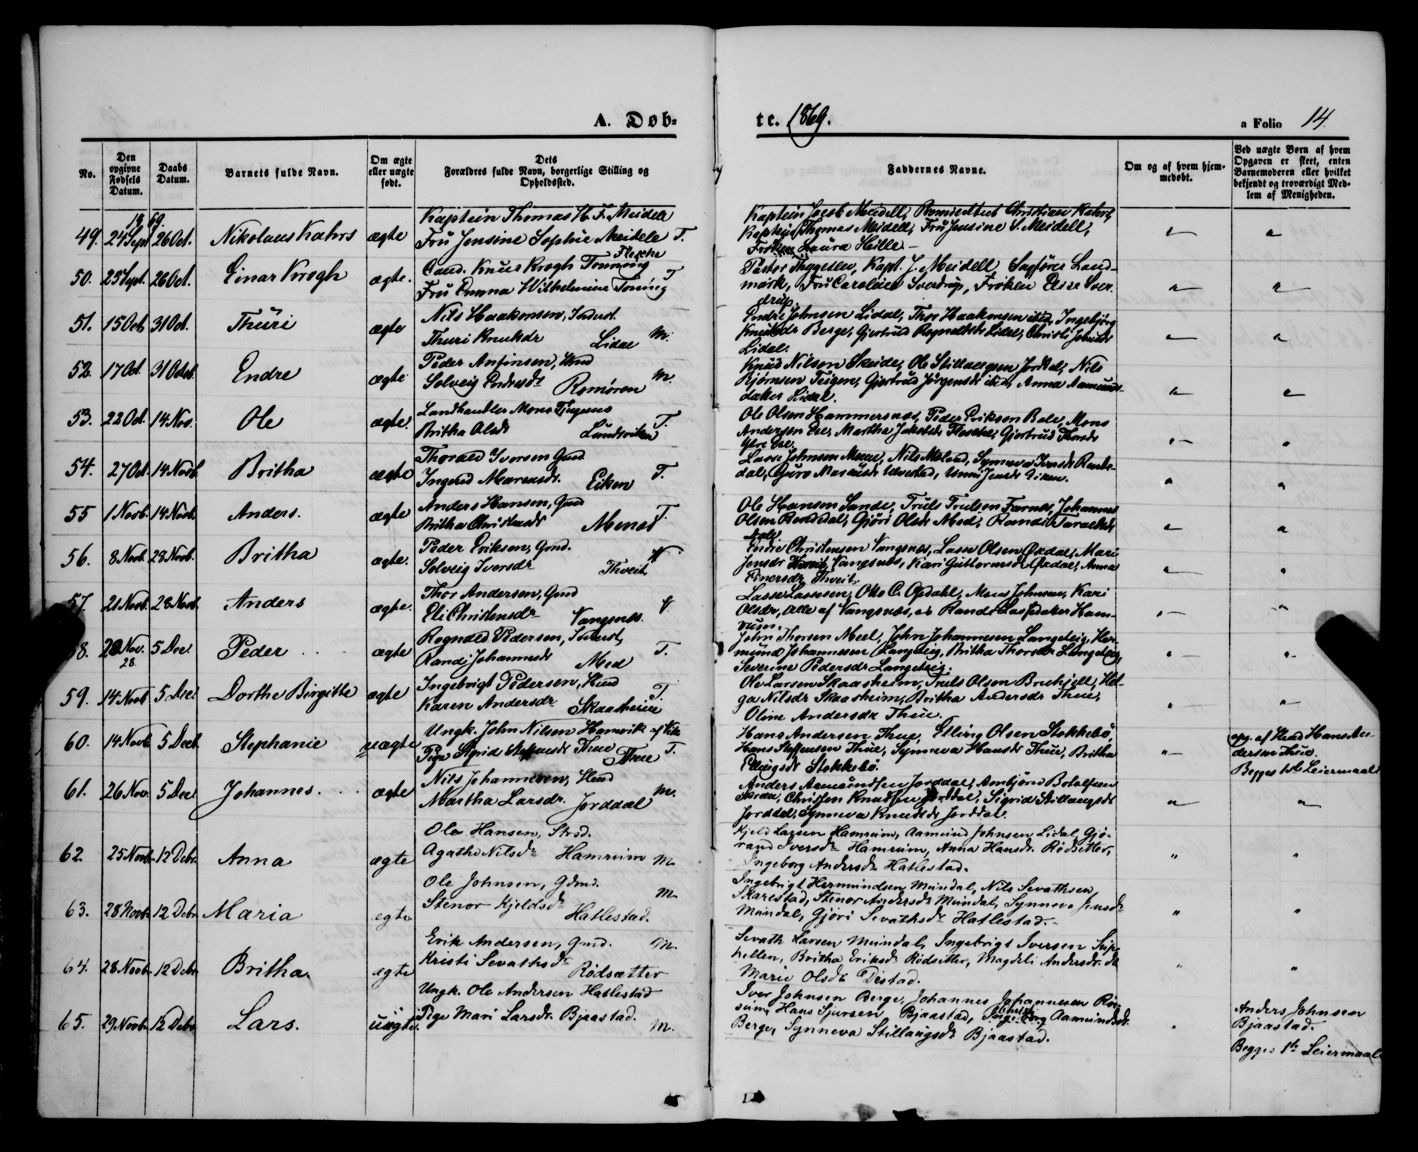 A. Døb-
te. 1869.
a Folio 14.
No.
Den opgivne Fødsels Datum.
Daabs Datum.
Barnets fulde Navn.
Om ægte eller uægte født.
Dets Forældres fulde Navn, borgerlige Stilling og Opholdssted.
Faddernes Navne.
Om og af hvem hjemmedøbt.
Ved uægte Børn af hvem Opgaven er skeet, enten Barnemoderen eller hvilket bekjendt og troværdigt Medlem af Menigheden.
1869
49. 24 Sept 26 Oct. Nikolaus Kahrs ægte
Kaptein Thomas H. F. Meidell
Fru Jensine Sophie Meidell T.
Kaptein Jacob Meidell, Christian Kahrs,
Kaptein Thomas Meidell, Fru Jensine S. Meidell,
Frøken Laura Heille
50. 25 Sept. 26 Oct. Einar Krogh ægte.
Cand. Knut Krogh Tonning
Fru Emma Wilhelmine Tonning T
Pastor Kapt. J. Meidell Sagfører Land-
mark, Fru Caroline Sverdrup, Frøken Sver-
drup.
51. 15 Oct 31 Oct. Thuri ægte
Nils Haakonsen, Inderst
Thuri Knutsdr Lidal M.
Endre Johnsen Lidal, Thor Haakonsen Ingebjørg
Knutsdr Berge, Gjertrud Ragnaldsdr Lidal, Christi Johnsdr
Lidal.
52. 17 Oct 31 Octob. Endre ægte
Peder Anfinsen, Huusd
Solveig Endresdr Romøren M.
Knud Nilsen Skeide, Ole Stillaugsen Jorddal, Nils
Bjørnsen Teigen, Gjertrud Jørgensdr Anna Aamunds-
datter Lidal.
53. 22 Oct. 14 Nov. Ole ægte
Landhandler Mons
Britha Olsdr Lundsviken T.
Ole Olsen Hammersnes, Peder Eriksen Bale, Mons
Andersen Ese, Martha Jakobsdr Gjertrud Thordr
Ytre Ese.
54. 27 Oct. 14 Novb Britha ægte
Thorald Iversen Gmd
Ingerid Eiken T.
Lasse Johnsen Mene, Nils Synneva Iversdr
dal, Guro Jensdr Eiken.
55 1 Novb. 14 Novb. Anders. ægte
Anders Hansen, Gmd
Britha Christensdr Menes T.
Ole Hansen Sande, Truls Trulsen Farnes, Johannes
Olsen Gjøri Olsdr Mel, Randi
56. 8 Novb. 28 Novb. Britha ægte.
Peder Eriksen, Gmd.
Solveig Iversdr Thveit V
Endre Christensen Vangsnes, Lasse Olsen Mari
Jensdr Vangsnes, Kari Guttormsdr Anna
Einersdr Thveit.
57. 21 Novb. 28 Novb. Anders ægte.
Thor Andersen, Gmd
Eli Christensdr Vangsnes. V
Lasse Lassesen, Ole O. Opdahl, Mons Johnsen, Kari
Olsdr, alle af Vangsnes, og Randi Lassedatter Ham-
rum.
58. 20 Nov. 5 Dec. Peder ægte
28.
Rognald Pedersen, Inderst,
Randi Johannesdr Mel T.
John Thorsen Meel, John Johannesen Langeteig, Her-
mund Johannesen Langteig, Britha Thorsdr Langeteig,
Severine Pedersdr Langeteig.
59. 14 Novb 5 Dec. Dorthe Birgitte ægte
Ingebrigt Pedersen, Huusd
Karen Andersdr Skaasheim T.
Ole Larsen Skaasheim, Truls Olsen Brekjell, Hel-
ga Nilsdr Skaasheim, Britha Andersdr Thue,
Oline Andersdr Thue.
60. 14 Novb 5 Decb. Stephanie uægte
Ungk. John Nilsen Hamrik af Vik
Pige Sigrid Steffensdr Thue Thue T.
Hans Andersen Thue, Elling Olsen Stokkebø,
Hans Steffensen Thue, Synneva Hansdr Thue, Britha
Ellingsdr Stokkebø.
opg. af Huusd Hans An-
dersen Thue.
Begges 1ste Leiermaal
61. 26 Nov. 5 Dec. Johannes. ægte
Nils Johannesen, Huusd
Martha Larsdr. Jorddal M.
Anders Aamundsen Jorddal, Ambjørn Botolfsen
Christen Knudsen Jorddal, Sigrid Stillaugsdr
Jorddal, Synneva Knudsdr Jorddal.
62. 25 Novb. 12 Decbr. Anna ægte
Ole Hansen, Strsd.
Agathe Nilsdr Hamrum M.
Kjeld Larsen Hamrum, Aamund Johnsen Lidal, Gjø-
rand Iversdr Hamrum, Anna Hansdr. Rødsetter,
Ingeborg Andersdr Hatlestad.
63. 28 Novb. 12 Decbr. Maria ægte
Ole Johnsen, Gdmd. M.
Stenor Kjeldsdr Hatlestad.
Ingebrigt Hermundsen Mundal, Nils Sevathsen
Skarestad, Stenor Andersdr Mundal, Synneva Jensdr
Mundal, Gjøri Sevathsdr Hatlestad.
64. 28 Novb. 12 Decbr Britha ægte
Erik Andersen, Gmd. M.
Kristi Sevathsdr Rødsætter
Sevath Larsen Mundal, Ingebrigt Iversen Sup-
hellen, Britha Eriksdr Rødsetter, Magdeli Andersdr. do
Marie Olsdr Distad.
65. 29 Novb. 12 Decbr. Lars. uægte
Ungk. Ole Andersen Hatlestad
Pige Mari Larsdr. Bjaastad. M.
Iver Johnsen Berge, Johannes Johannesen Røn-
sum, Hans Sjursen Bjaastad, Ingeborg Aamundsdr.
Berge, Synneva Stillaugsdr Bjaastad.
Anders Johnsen
Bjaastad.
Begges 1ste Leiermaal